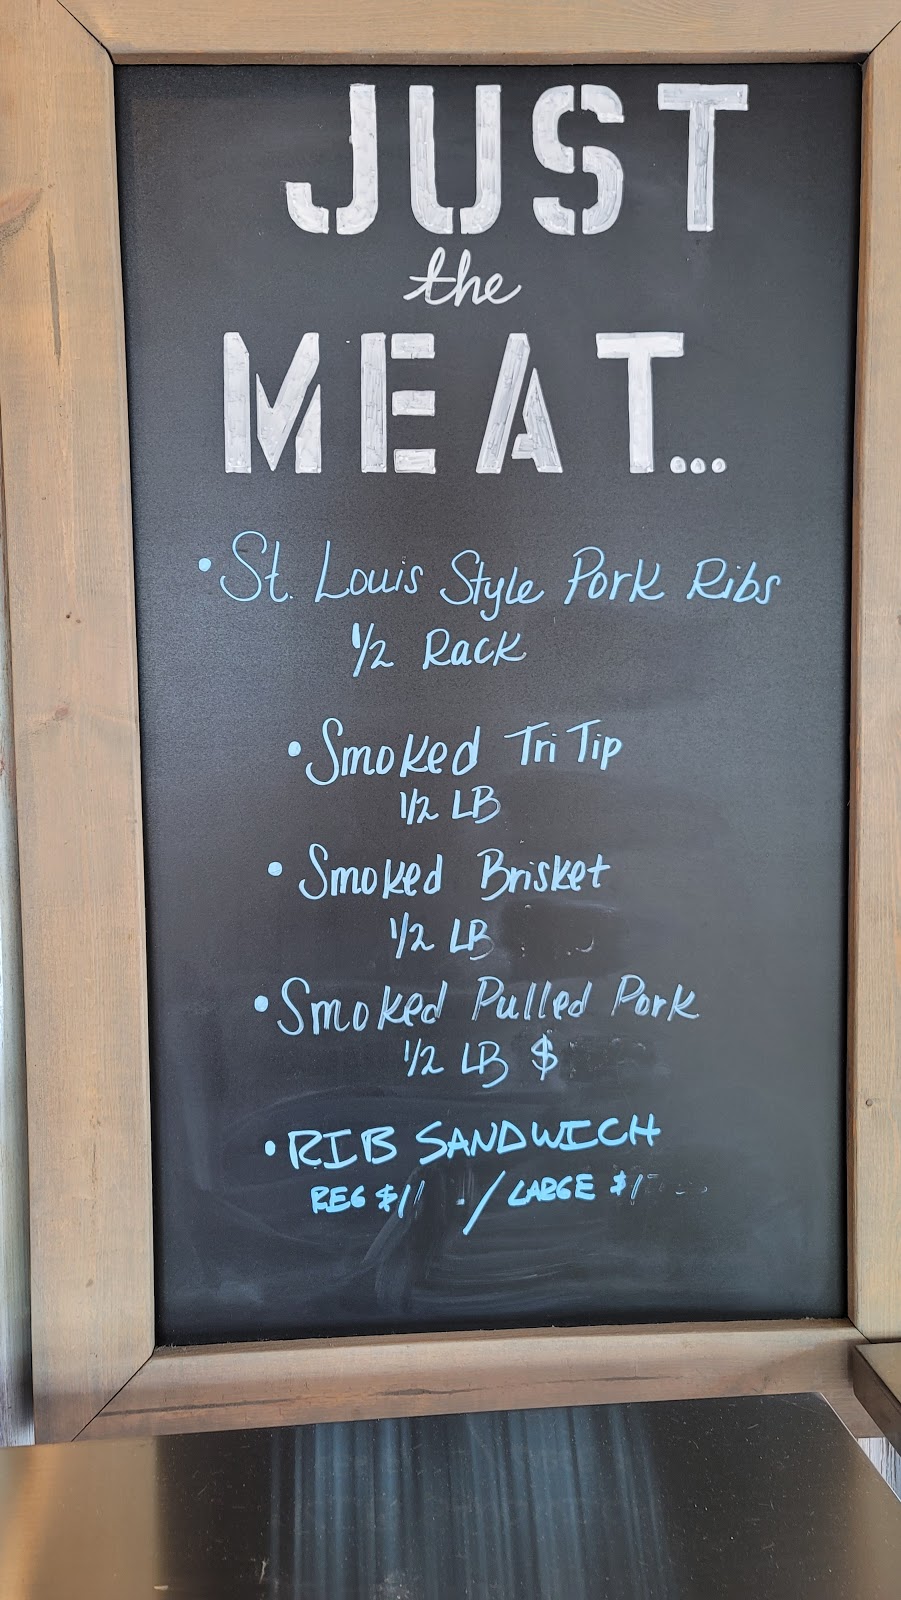 JUST
the
MEAT...
• St. Louis Style Pork Ribs
1/2 Rack
• Smoked Tri Tip
1/2 LB
• Smoked Brisket
1/2 LB
• Smoked Pulled Pork
1/2 LB $
• RIB SANDWICH
REG $11 / LARGE $1